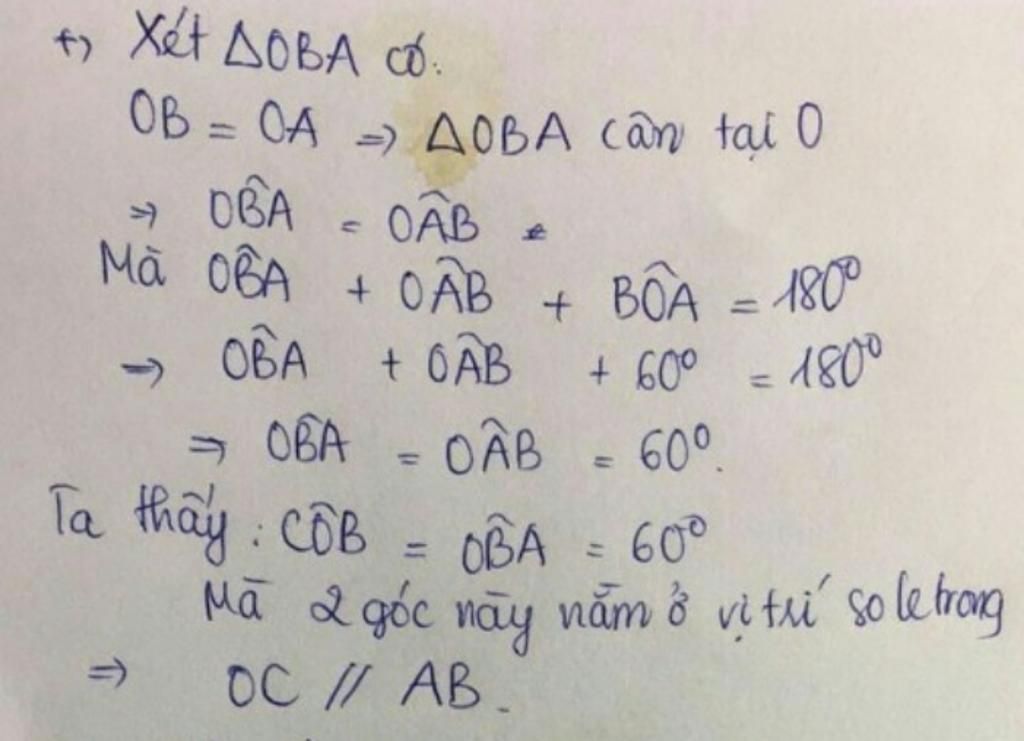 +) Xét ΔOBA có:
OB = OA => ΔOBA cân tại O
=> OB̂A = OÂB
Mà OB̂A + OÂB + BÔA = 180⁰
=> OB̂A + OÂB + 60⁰ = 180⁰
=> OB̂A = OÂB = 60⁰.
Ta thấy: CÔB = OB̂A = 60⁰
Mà 2 góc này nằm ở vị trí so le trong
=> OC // AB.